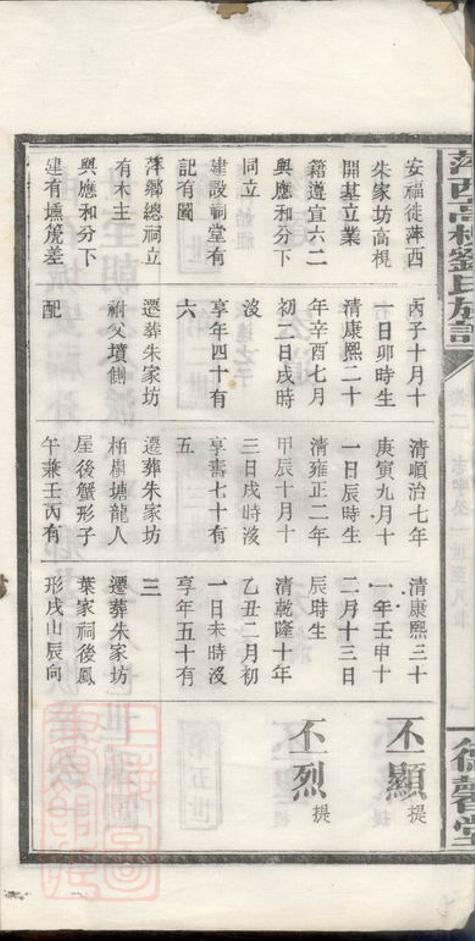 萍西高梘劉氏族譜
德馨堂
安福徙萍西
朱家坊高梘
開基立業
籍遵宣六二
與應和分下
同立
建設祠堂有
記有圖
萍鄉總祠立
有木主
與應和分下
建有壎箎差
丙子十月十
一日卯時生
清康熙二十
年辛酉七月
初二日戌時
沒
享年四十有
六
遷葬朱家坊
祔父墳側
配
清順治七年
庚寅九月十
一日辰時生
清雍正二年
甲辰十月十
三日戌時沒
享壽七十有
五
遷葬朱家坊
柏樹塘龍人
屋後蟹形子
午兼壬丙有
清康熙三十
一年壬申十
二月十三日
辰時生
清乾隆十年
乙丑二月初
一日未時沒
享年五十有
三
遷葬朱家坊
葉家祠後鳳
形戌山辰向
丕顯 提
丕烈 提